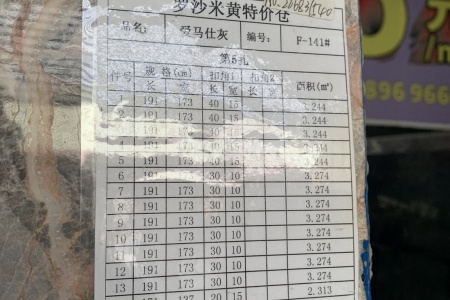 罗沙米黄特价仓
品名: 爱马仕灰 编号: F-141#
第5扎
件号 规格(cm) 扣角1 扣角2 面积(m²)
长 宽 长 宽 长 宽
1 191 173 40 15 3.244
2 191 173 40 15 3.244
3 191 173 40 15 3.244
4 191 173 40 15 3.244
5 191 173 40 15 3.244
6 191 173 30 10 3.274
7 191 173 30 10 3.274
8 191 173 30 10 3.274
9 191 173 30 10 3.274
10 191 173 30 10 3.274
11 191 173 30 10 3.274
12 191 173 30 10 3.274
13 191 173 30 10 3.274
191 137 20 15 2.313
0896 966